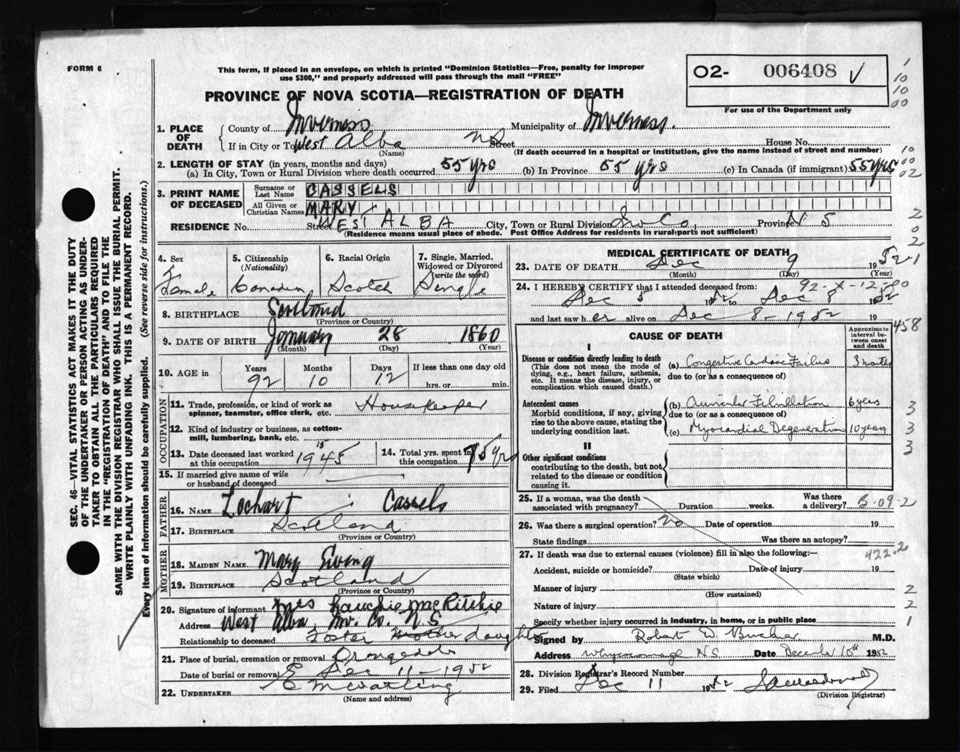 FORM 6
This form, if placed in an envelope, on which is printed "Dominion Statistics—Free, penalty for improper
use $300," and properly addressed will pass through the mail "FREE"
PROVINCE OF NOVA SCOTIA—REGISTRATION OF DEATH
O2- 006408
For use of the Department only
1. PLACE OF DEATH { County of Inverness Municipality of Inverness.
If in City or Town West Alba NS Street House No.
(Name) (If death occurred in a hospital or institution, give the name instead of street and number)
2. LENGTH OF STAY (in years, months and days)
(a) In City, Town or Rural Division where death occurred 55 yrs (b) In Province 55 yrs (c) In Canada (if immigrant) 55 yrs
3. PRINT NAME OF DECEASED { Surname or Last Name CASSELS
All Given or Christian Names MARY
RESIDENCE No. Street WEST ALBA City, Town or Rural Division Inv Co, Province N S
(Residence means usual place of abode. Post Office Address for residents in rural parts not sufficient)
4. Sex Female
5. Citizenship (Nationality) Canadian
6. Racial Origin Scotch
7. Single, Married, Widowed or Divorced (write the word) Single
8. BIRTHPLACE Scotland
(Province or Country)
9. DATE OF BIRTH January 28 1860
(Month) (Day) (Year)
10. AGE in Years 92 Months 10 Days 12 If less than one day old hrs. or min.
OCCUPATION
11. Trade, profession, or kind of work as spinner, teamster, office clerk, etc. Housekeeper
12. Kind of industry or business, as cotton-mill, lumbering, bank, etc.
13. Date deceased last worked at this occupation 1945
14. Total yrs. spent in this occupation
15. If married give name of wife or husband of deceased
FATHER
16. NAME Lochart Cassels
17. BIRTHPLACE Scotland
(Province or Country)
MOTHER
18. MAIDEN NAME Mary Ewing
19. BIRTHPLACE Scotland
(Province or Country)
20. Signature of informant Mrs Lauchie MacRitchie
Address West Alba, Inv. Co. N.S
Relationship to deceased Foster Mother daughter
21. Place of burial, cremation or removal Orangedale
Date of burial or removal Dec 11 - 1952
22. UNDERTAKER
(Name and address)
MEDICAL CERTIFICATE OF DEATH
23. DATE OF DEATH Dec 9 1952
(Month) (Day) (Year)
24. I HEREBY CERTIFY that I attended deceased from:
Dec 5 1952 to Dec 8 1952
and last saw her alive on Dec 8 - 1952
CAUSE OF DEATH
Approximate interval between onset and death
I
Disease or condition directly leading to death
(This does not mean the mode of dying, e.g., heart failure, asthenia, etc. It means the disease, injury, or complication which caused death.)
(a) Congestive Cardiac Failure 3 weeks
due to (or as a consequence of)
Antecedent causes
Morbid conditions, if any, giving rise to the above cause, stating the underlying condition last.
(b) Auricular Fibrillation 6 years
due to (or as a consequence of)
(c) Myocardial Degeneration 10 years
II
Other significant conditions
contributing to the death, but not related to the disease or condition causing it.
25. If a woman, was the death associated with pregnancy? Duration weeks. Was there a delivery?
B-09-2
26. Was there a surgical operation? No Date of operation 19
State findings Was there an autopsy?
27. If death was due to external causes (violence) fill in also the following:—
422.2
Accident, suicide or homicide? Date of injury 19
(State which)
Manner of injury
(How sustained)
Nature of injury
Specify whether injury occurred in industry, in home, or in public place
Signed by M.D.
Address Whycocomagh NS Date December 10th 1952
28. Division Registrar's Record Number
29. Filed Dec 11 1952
(Division Registrar)
SEC. 46—VITAL STATISTICS ACT MAKES IT THE DUTY
OF THE UNDERTAKER OR PERSON ACTING AS UNDER-
TAKER TO OBTAIN ALL THE PARTICULARS REQUIRED
IN THE "REGISTRATION OF DEATH" AND TO FILE THE
SAME WITH THE DIVISION REGISTRAR WHO SHALL ISSUE THE BURIAL PERMIT.
WRITE PLAINLY WITH UNFADING INK. THIS IS A PERMANENT RECORD.
Every item of information should be carefully supplied. (See reverse side for instructions.)